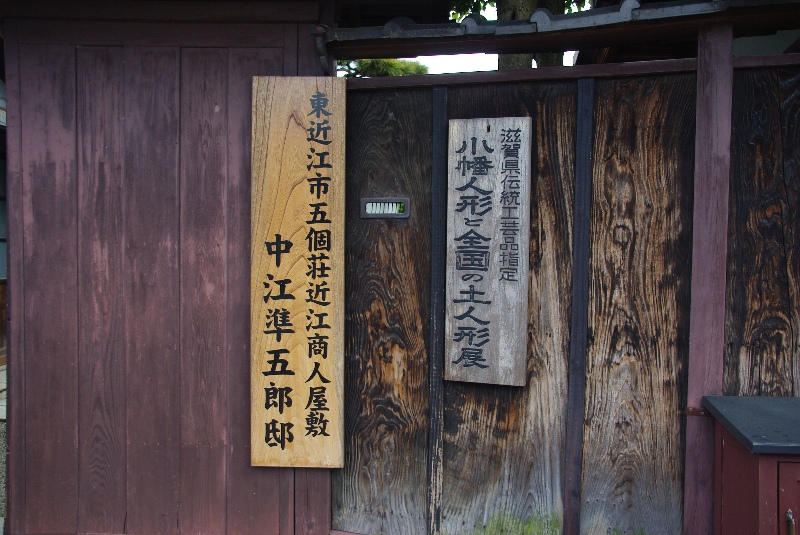 東近江市五個荘近江商人屋敷
中江準五郎邸
滋賀県伝統工芸品指定
小幡人形と全国の土人形展